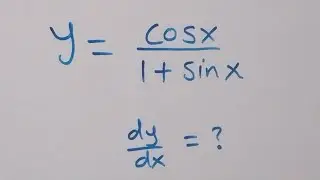 y = cosx / 1 + sinx
dy/dx = ?